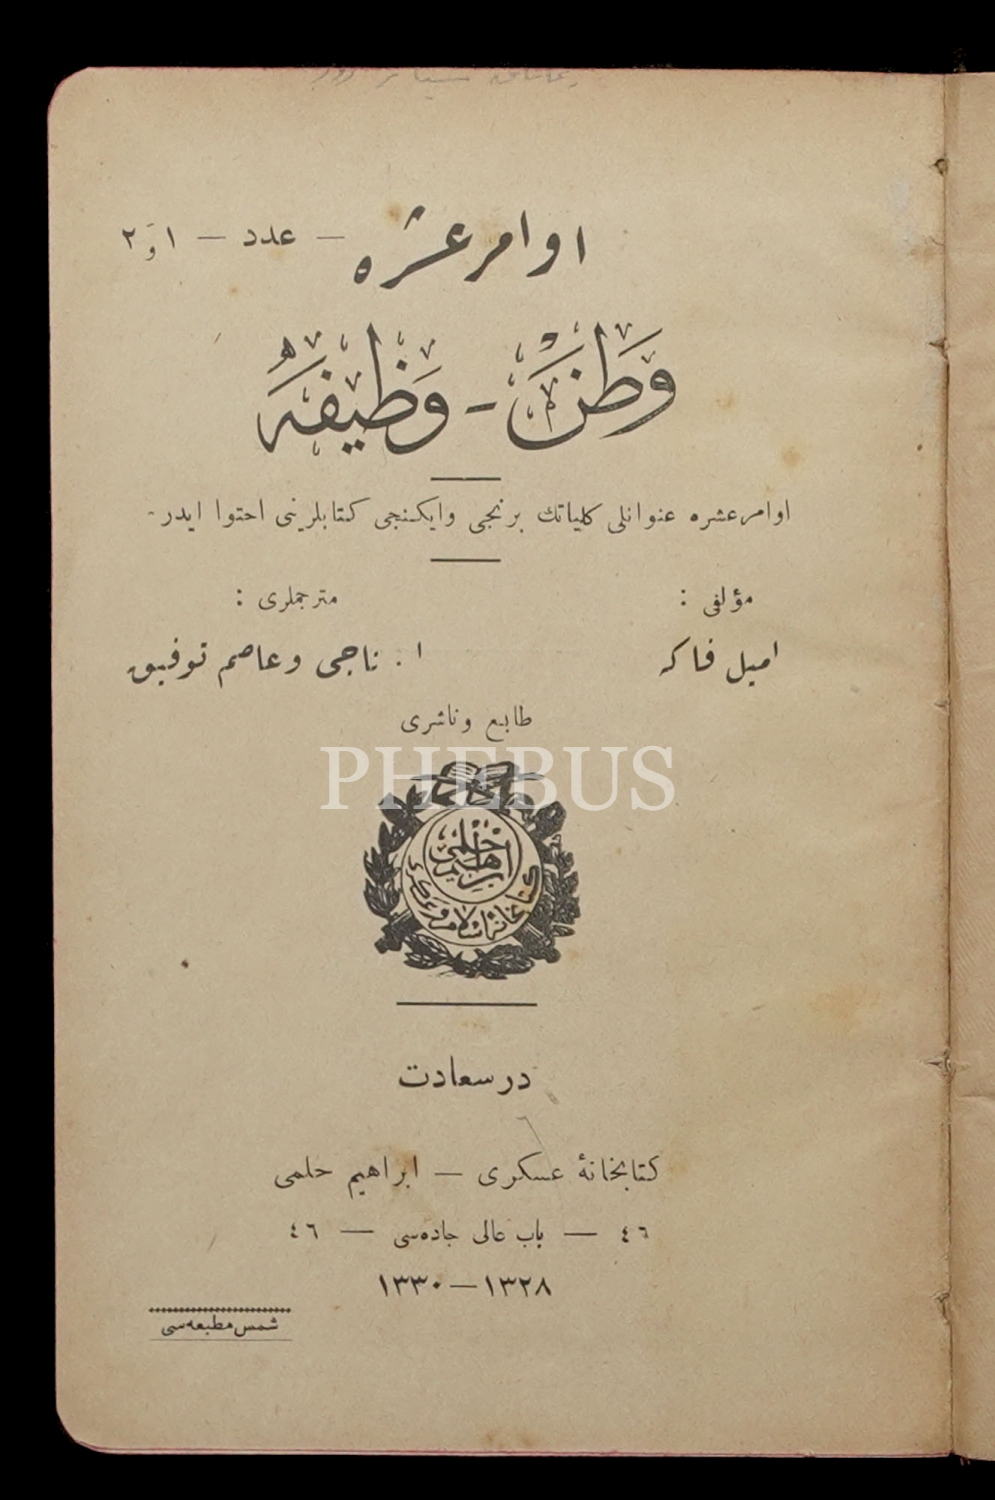 اوامر عشره — عدد — ١ و ٢
وطن - وظیفه
اوامر عشره عنوانلی کلیاتك برنجی وایکنجی کتابلرینی احتوا ایدر.
مؤلفی : مترجملری :
امیل فاکه ا . ناجی و عاصم توفیق
طابع وناشری
PHEBUS
ابراهیم حلمی
کتابخانهٔ اسلام و عسکری
درسعادت
کتابخانهٔ عسکری — ابراهیم حلمی
٤٦ — باب عالی جاده‌سی — ٤٦
١٣٢٨—١٣٣٠
شمس مطبعه‌سی